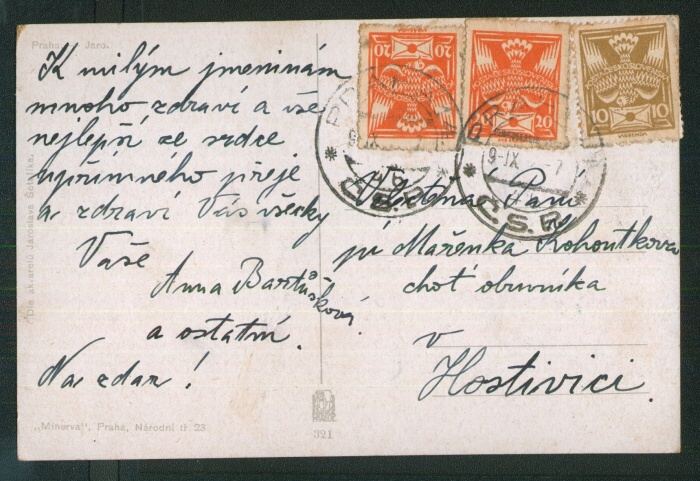 Praha. Jaro.
K milým jmeninám
mnoho zdraví a vše
nejlepší ze srdce
upřímného přeje
a zdraví Vás všecky
Vaše
Anna Bartůšková
a ostatní.
Na zdar!
"Minerva", Praha, Národní tř. 23
Dle akvarelů Jaroslava Šetelíka.
321
20 20
20
10 10
9-IX
Č.S.P.
9-IX 7
Č.S.P.
Paní
Mařenka Kohoutkova
choť obuvníka
v
Hostivici.